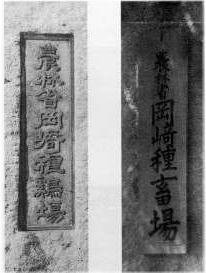 農林省岡崎種鶏場
農林省岡崎種畜場